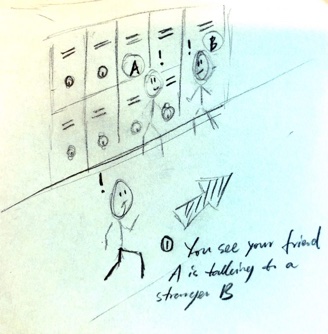 A
B
!
!
!
① You see your friend
A is talking to a
stranger B